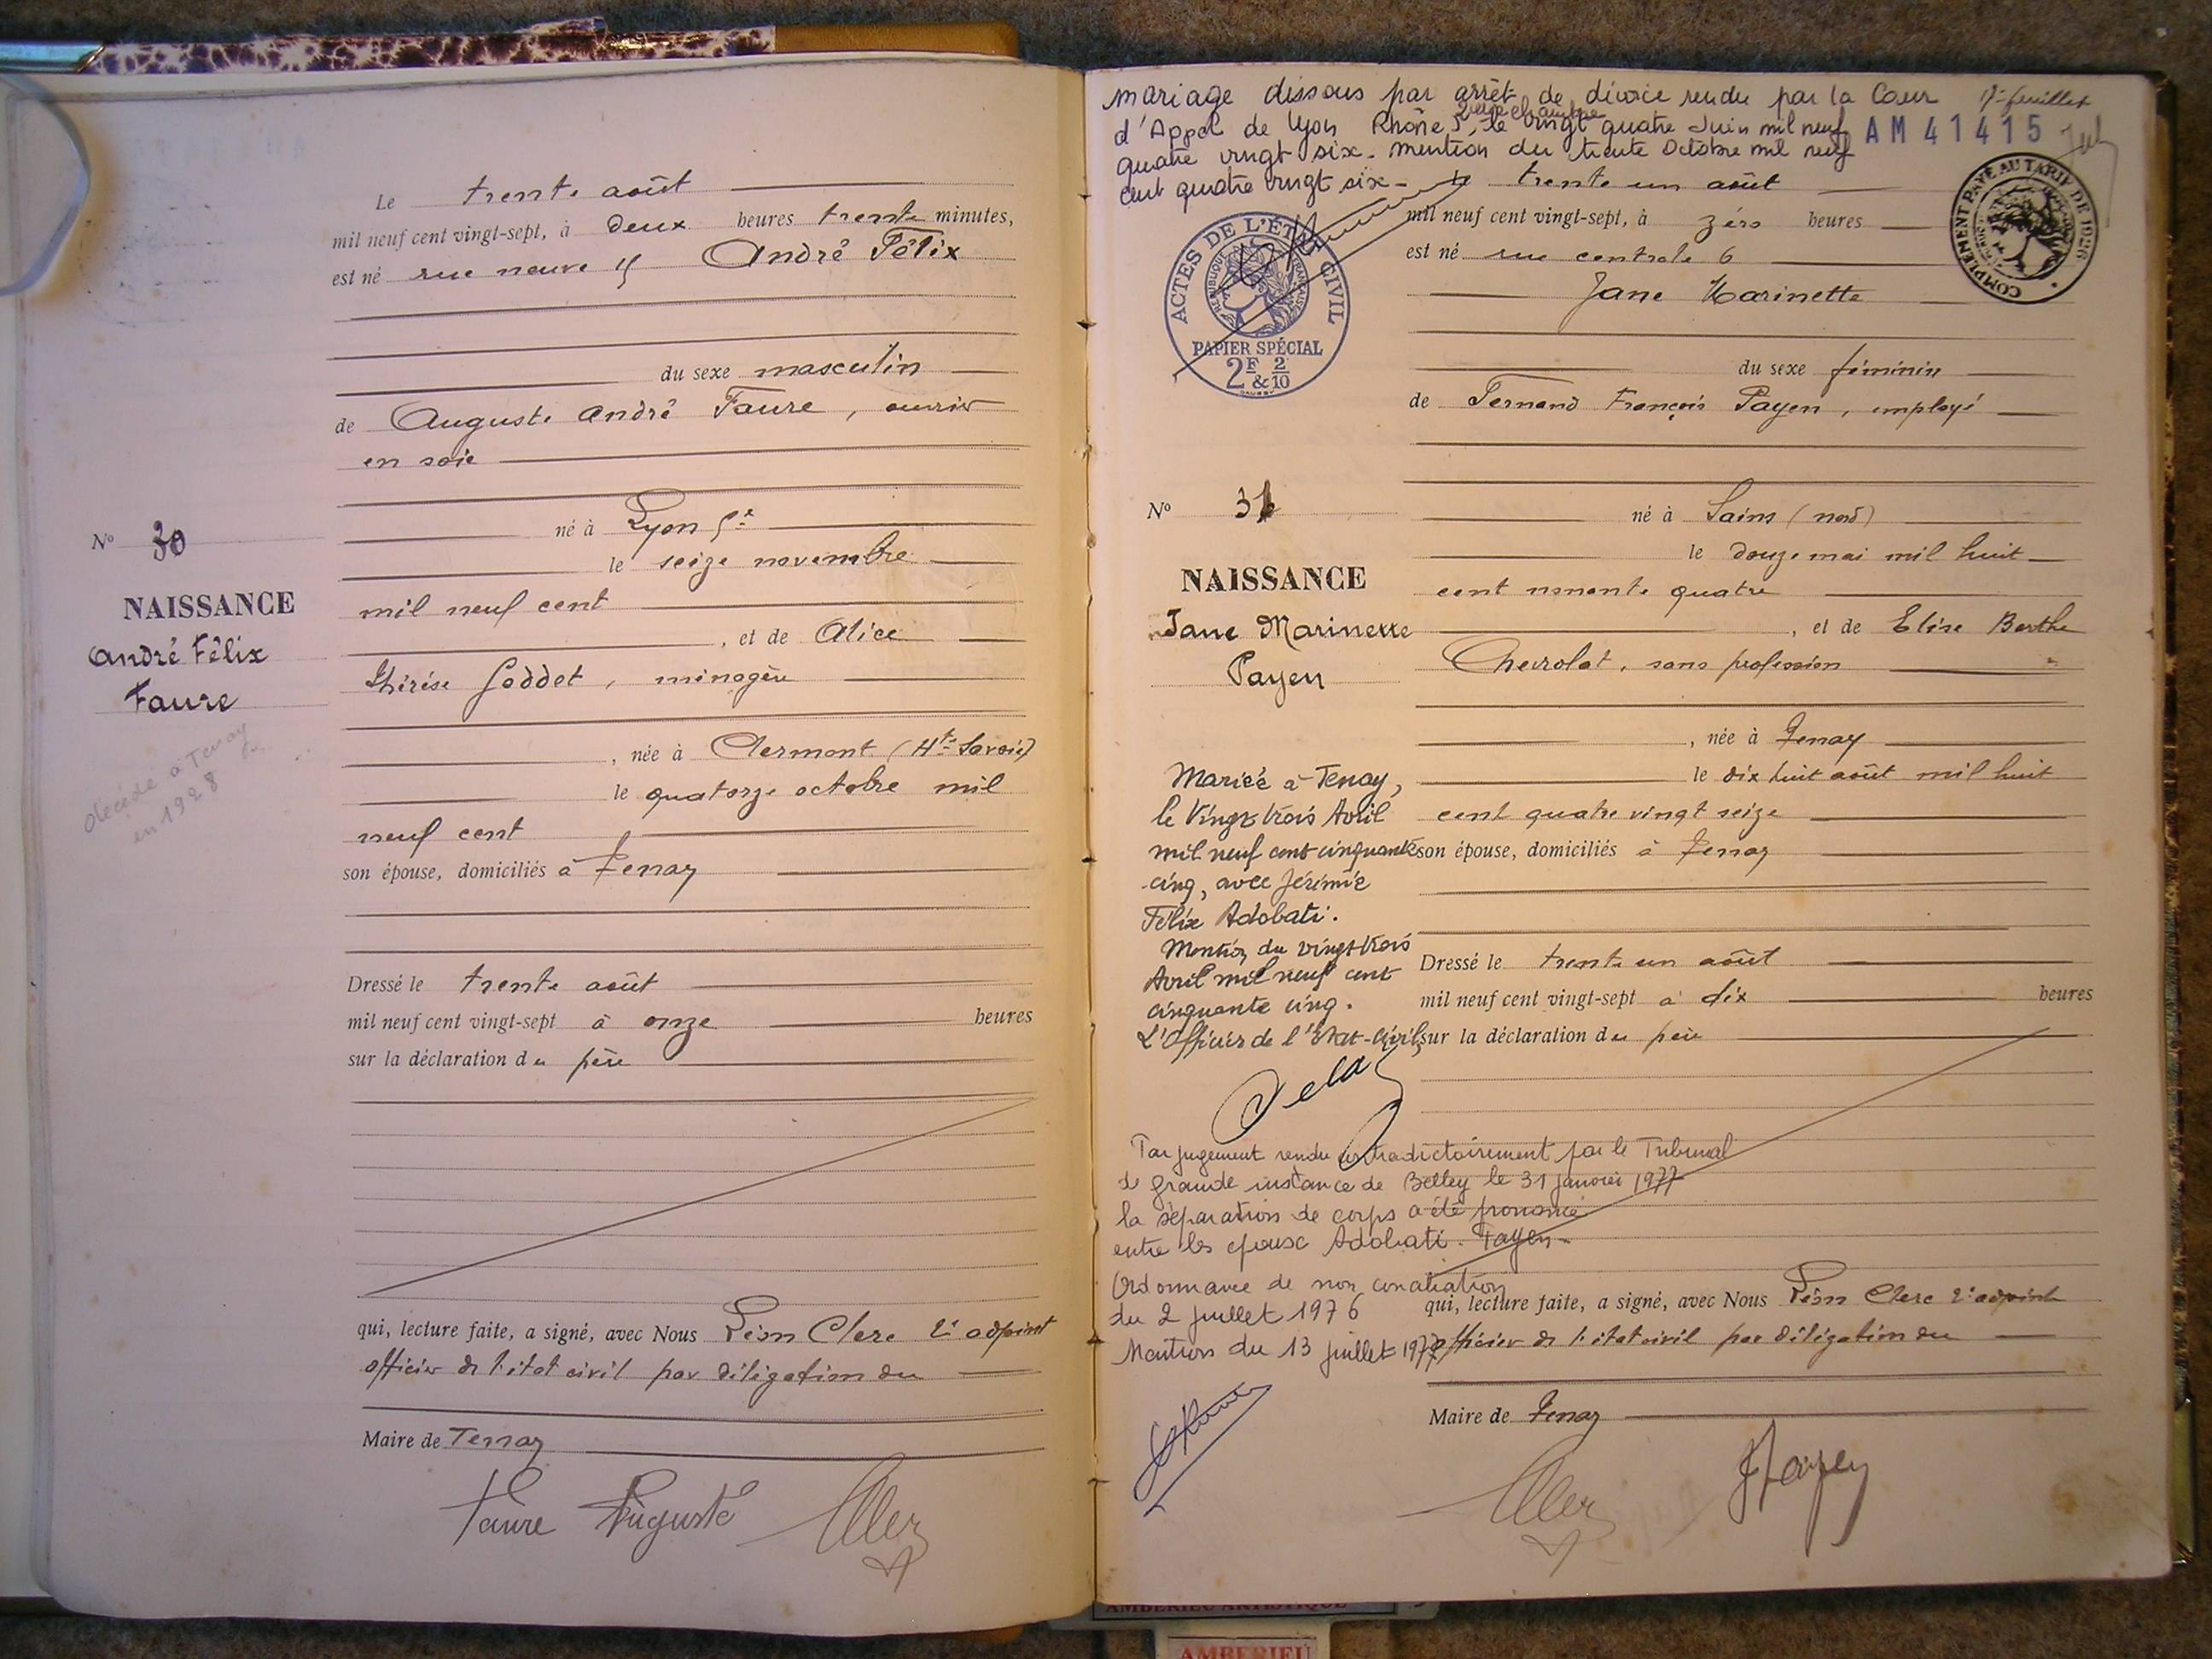 Le trente août
mil neuf cent vingt-sept, à deux heures trente minutes,
est né rue neuve André Félix
du sexe masculin
de Auguste André Faure, ouvrier
en soie
né à Lyon 5e
le seize novembre
mil neuf cent
, et de Alice
Thérèse Goddet, ménagère
, née à Clermont (Hte Savoie)
le quatorze octobre mil
neuf cent
son épouse, domiciliés à Tenay
Dressé le trente août
mil neuf cent vingt-sept à onze heures
sur la déclaration du père
qui, lecture faite, a signé, avec Nous Léon Clerc 2e adjoint
officier de l'état civil par délégation du
Maire de Tenay
Faure Auguste
No 30
NAISSANCE
André Félix
Faure
décédé à Tenay
en 1928
mariage dissous par arrêt de divorce rendu par la Cour
d'Appel de Lyon Rhône, 2ème chambre, le vingt quatre Juin mil neuf
quatre vingt six. mention du trente Octobre mil neuf
cent quatre vingt six
17e feuillet
AM 41415
COMPLÉMENT PAYÉ AU TARIF DE 1926
ACTES DE L'ÉTAT CIVIL
RÉPUBLIQUE FRANÇAISE
PAPIER SPÉCIAL
2F & 2/10
Le trente un août
mil neuf cent vingt-sept, à zéro heures
est né rue centrale 6
Jane Marinette
du sexe féminin
de Fernand François Payen, employé
né à Sains (nord)
le douze mai mil huit
cent nonante quatre
, et de Elise Berthe
Chevrolat, sans profession
, née à Tenay
le dix huit août mil huit
cent quatre vingt seize
son épouse, domiciliés à Tenay
Dressé le trente un août
mil neuf cent vingt-sept à dix heures
sur la déclaration du père
qui, lecture faite, a signé, avec Nous Léon Clerc 2e adjoint
officier de l'état civil par délégation du
Maire de Tenay
Payen
No 31
NAISSANCE
Jane Marinette
Payen
Mariée à Tenay,
le Vingt trois Avril
mil neuf cent cinquante
cinq, avec Jérémie
Félix Adobati.
Mention du vingt trois
Avril mil neuf cent
cinquante cinq.
L'Officier de l'Etat-Civil,
Par jugement rendu contradictoirement par le Tribunal
de grande instance de Belley le 31 janvier 1977
la séparation de corps a été prononcé
entre les epoux Adobati - Payen -
Ordonnance de non conciliation
du 2 juillet 1976
Mention du 13 juillet 1977
AMBERIEU ARTISTIQUE
AMBERIEU